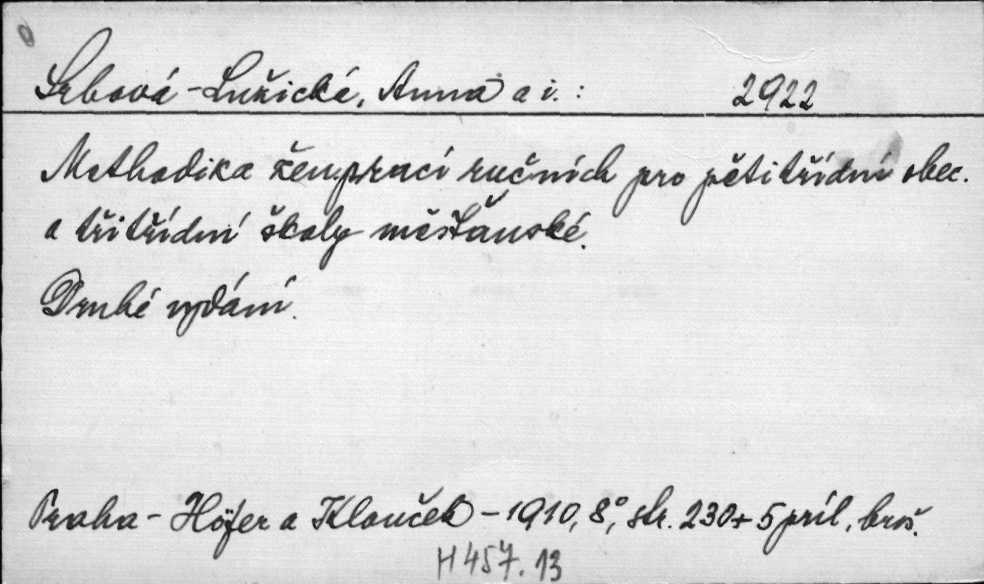 Srbová-Lužická, Anna a i.: 2922
Methodika žen. prací ručních pro pětitřídní obec.
a třitřídní školy měšťanské.
Druhé vydání.
Praha - Höfer a Klouček - 1910, 8°, str. 230 + 5 příl, brož.
H 457.13